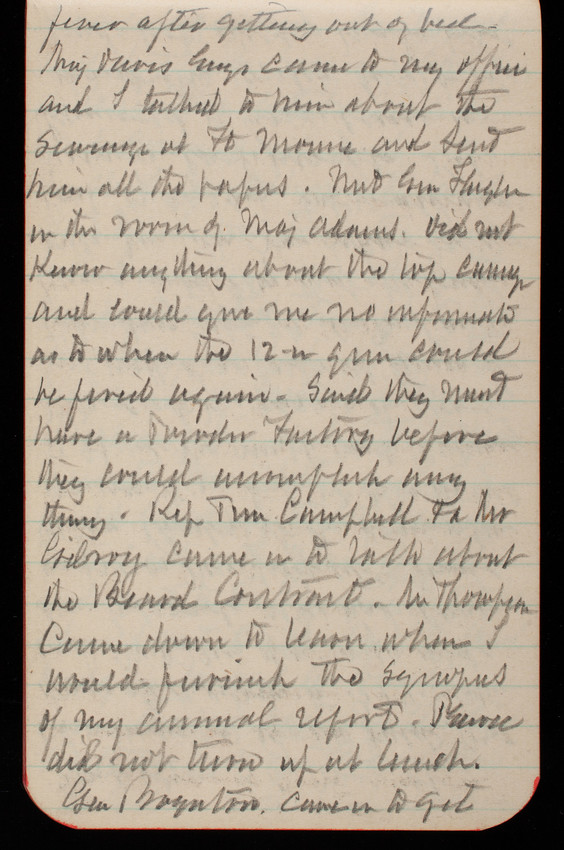 fever after getting out of bed.
Maj Davis Engr came to my office
and I talked to him about the
Sewerage at Ft Monroe and sent
him all the papers. Met Gen Flagler
in the room of Maj Adams. Did not
Know anything about the top carriage
and could give me no information
as to when the 12-in gun could
be fired again. Said they must
have a Powder Factory before
they could accomplish any
thing. Rep Tim Campbell & a Mr
Gilroy came in to talk about
the Beard Contract. Mr Thompson
Came down to learn when I
would furnish the synopsis
of my annual report.
did not turn up at lunch.
Gen Boynton. came in to get